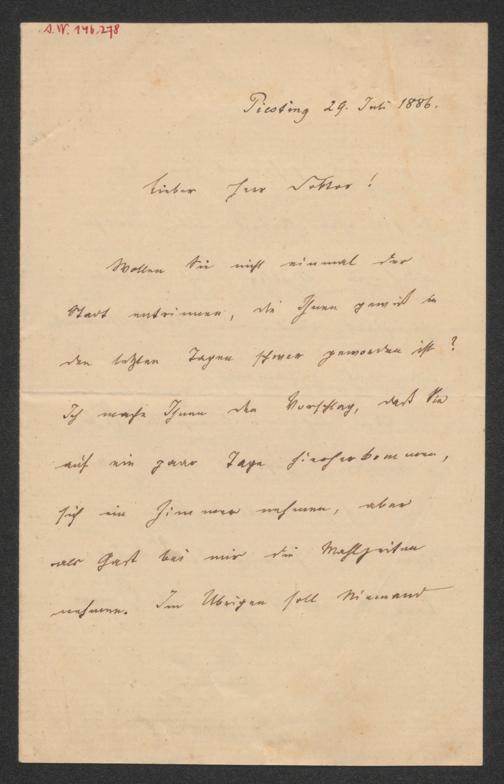 A.W. 146.278
Piesting 29. Juli 1886.
Lieber Herr Doktor!
Wollen Sie nicht einmal der
Stadt entrinnen, die Ihnen gewiß in
den letzten Tagen schwer geworden ist?
Ich mache Ihnen den Vorschlag, daß Sie
auf ein paar Tage hierherkommen,
sich ein Zimmer nehmen, aber
als Gast bei mir die Mahlzeiten
nehmen. Im Übrigen soll Niemand